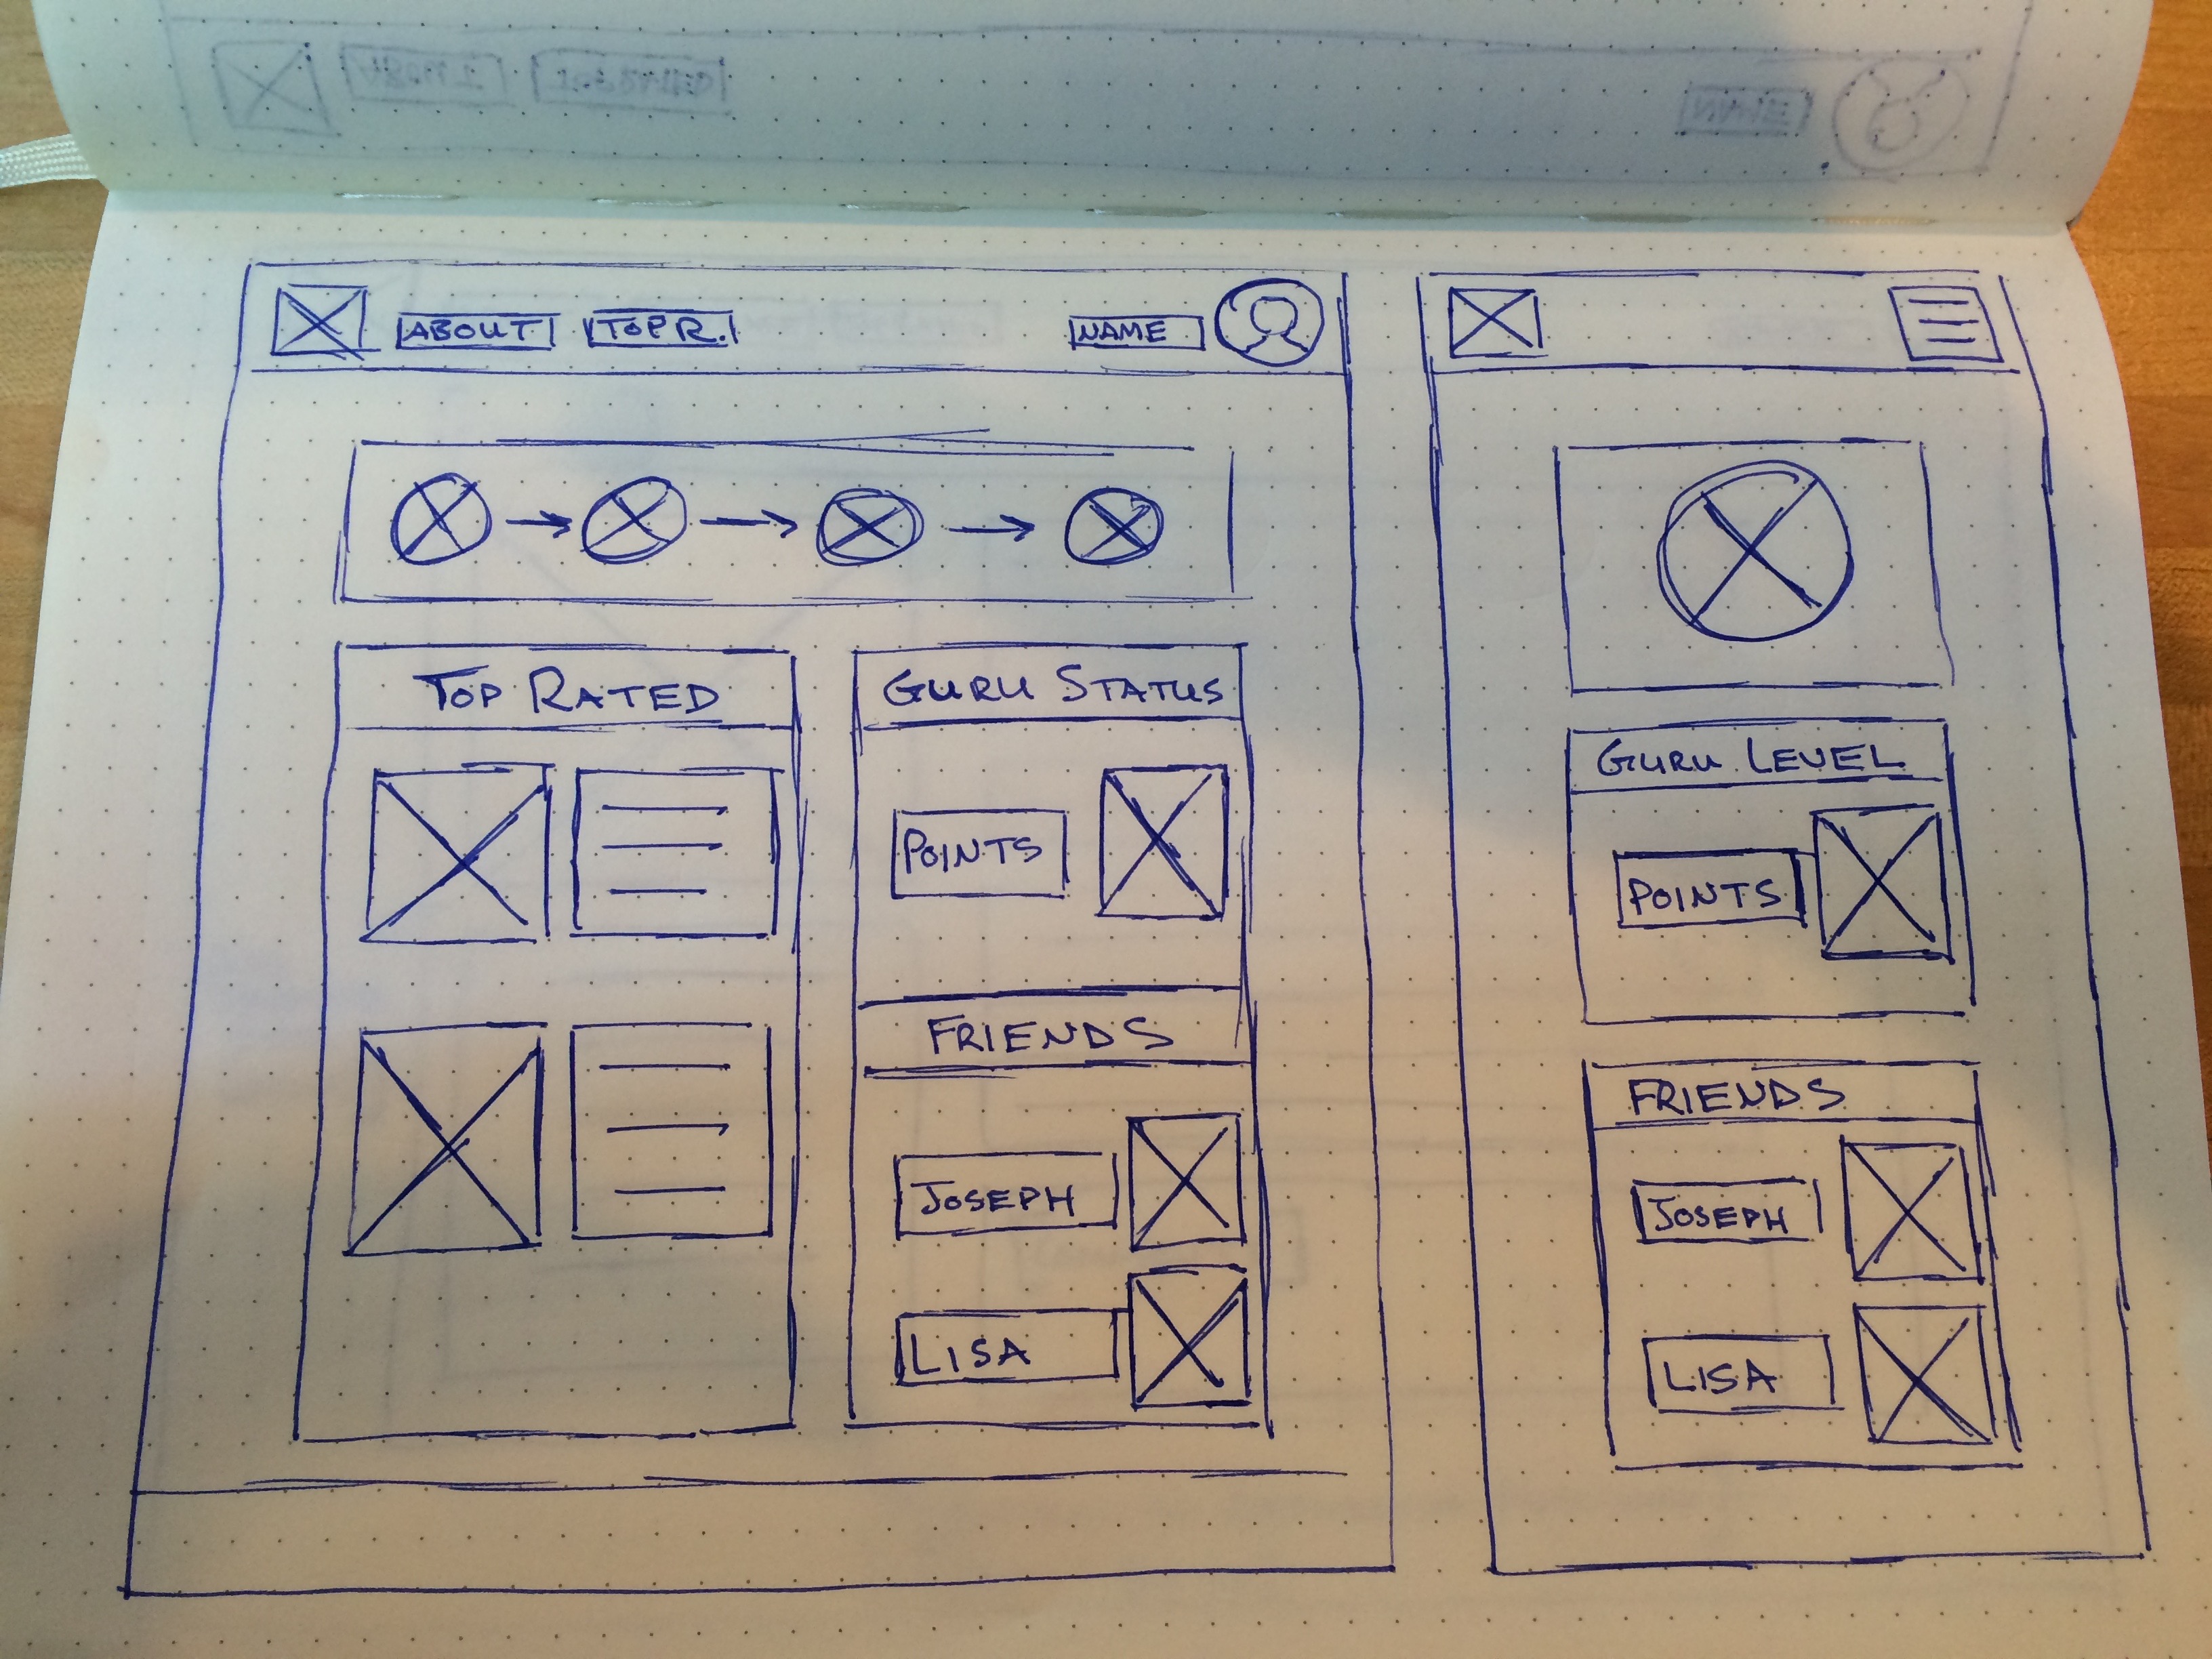 ABOUT TOP R. NAME
TOP RATED
GURU STATUS
POINTS
FRIENDS
JOSEPH
LISA
GURU LEVEL
POINTS
FRIENDS
JOSEPH
LISA